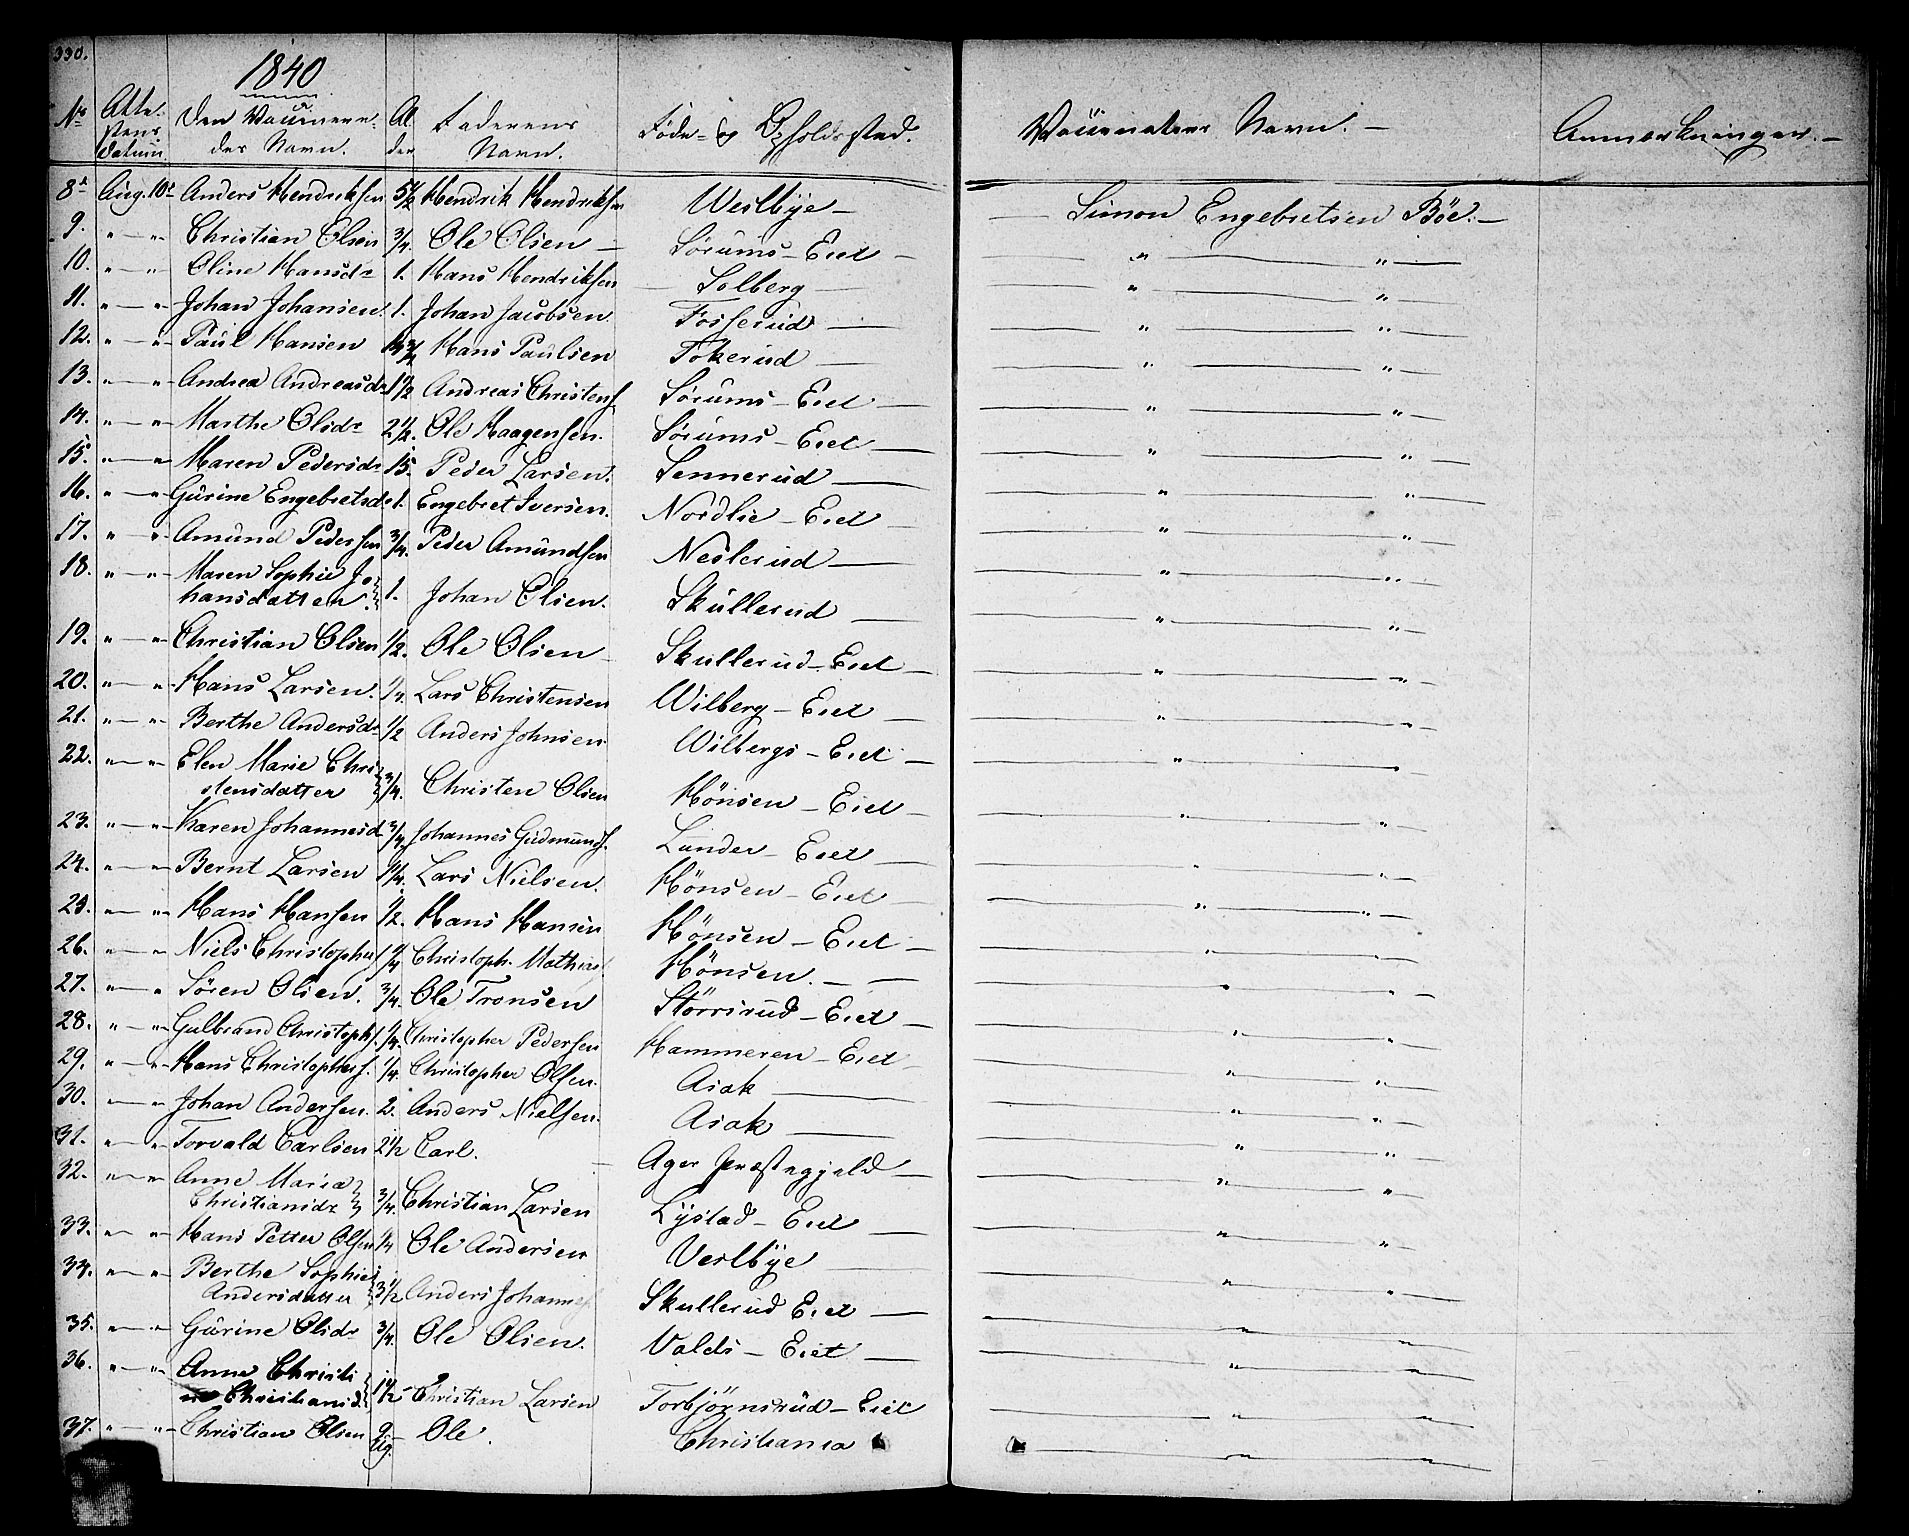 330.
1840
No Atte- Den Vaccinere- Al Faderens Føde- og Opholdssted. Vaccinateur Navn. — Anmærkninger. —
stens datum. des Navn. der Navn.
8de Aug. 10de Anders Hendriksen 5 1/2 Hendrik Hendriksen Westbÿe — — Simon Engebretsen Böe. —
9. " — " — Christian Olsen 3/4 Ole Olsen — Sørums — Eiet — — " — " —
10. " — " Oline Hansdr 1. Hans Hendriksen — Solberg — — " — " —
11. " — " Johan Johansen. 1. Johan Jacobsen. Fosserud — — " — " —
12. " — " — Paul Hansen 3/4 Hans Paulsen Tokerud — — " — " —
13. " — " — Andrea Andreasdr 1 1/2 Andreas Christens. Sørums — Eiet — — " — " —
14. " — " — Marthe Olsdr 2 1/2. Ole Haagensen. Sørums — Eiet — — " — " —
15. " — " — Maren Pedersdr 15. Peder Larsen. Sennerud — — " — " —
16. " — " — Gürine Engebretsd. 1. Engebret Iversen. Nordlie — Eiet — — " — " —
17. " — " — Amund Pedersen 3/4. Peder Amundsen Neslerud — — " — " —
18. " — " — Maren Sophie Jo-
hansdatter 1. Johan Olsen. Skullerud — — " — " —
19. " — " — Christian Olsen 1/2. Ole Olsen — Skullerud — Eiet — — " — " —
20. " — " — Hans Larsen. 1/4 Lars Christensen Wilberg — Eiet — — " — " —
21. " — " — Berthe Andersdr 1/2 Anders Johnsen Wilbergs — Eiet — — " — " —
22. " — " — Elen Marie Chri-
stensdatter 3/4. Christen Olsen Hönsen — Eiet — — " — " —
23. " — " — Karen Johannesd. 3/4 Johannes Gudmunds. Lunder — Eiet — — " — " —
24. " — " — Bernt Larsen 1 1/4. Lars Nielsen. Hönsen — Eiet — " — " —
25. " — " — Hans Hansen 1/2. Hans Hansen Hönsen — Eiet — — " — " —
26. " — " — Niels Christophers 1 1/4 Christoph. Mathias. Hönsen. — — — " — " —
27. " — " Sören Olsen. 3/4. Ole Tronsen Störrsrud — Eiet — — " — " —
28. " — " — Gulbrand Christophs. 1/4. Christopher Pedersen Hammeren — Eiet — " — " —
29. " — " — Hans Christophers. 1/4. Christopher Olsen. Asak — — " — " —
30. " — " — Johan Andersen. 2. Anders Nielsen. Asak — — " — " —
31. " — " Torvald Carlsen 2 1/2 Carl. — Ager Præstegjeld — — " — " —
32. " — " — Anne Maria
Christiansdr 3/4. Christian Larsen Lystad — Eiet — — " — " —
33. " — " — Hans Petter Olsen 1/4 Ole Andersen Vestbÿe — — " — " —
34. " — " — Berthe Sophie
Andersdatter 3 1/2 Anders Johannes. Skullerud Eiet — — " — " —
35. " — " — Gürine Olsdr 3/4. Ole Olsen. Valds — Eiet — — " — " —
36. " — " — Anne Christi-
ne Christiansd. 1 1/2 Christian Larsen Torbjörnsrud — Eiet — " — " —
37. " — " — Christian Olsen 9 Ug. — Ole. Christiania — " — " —